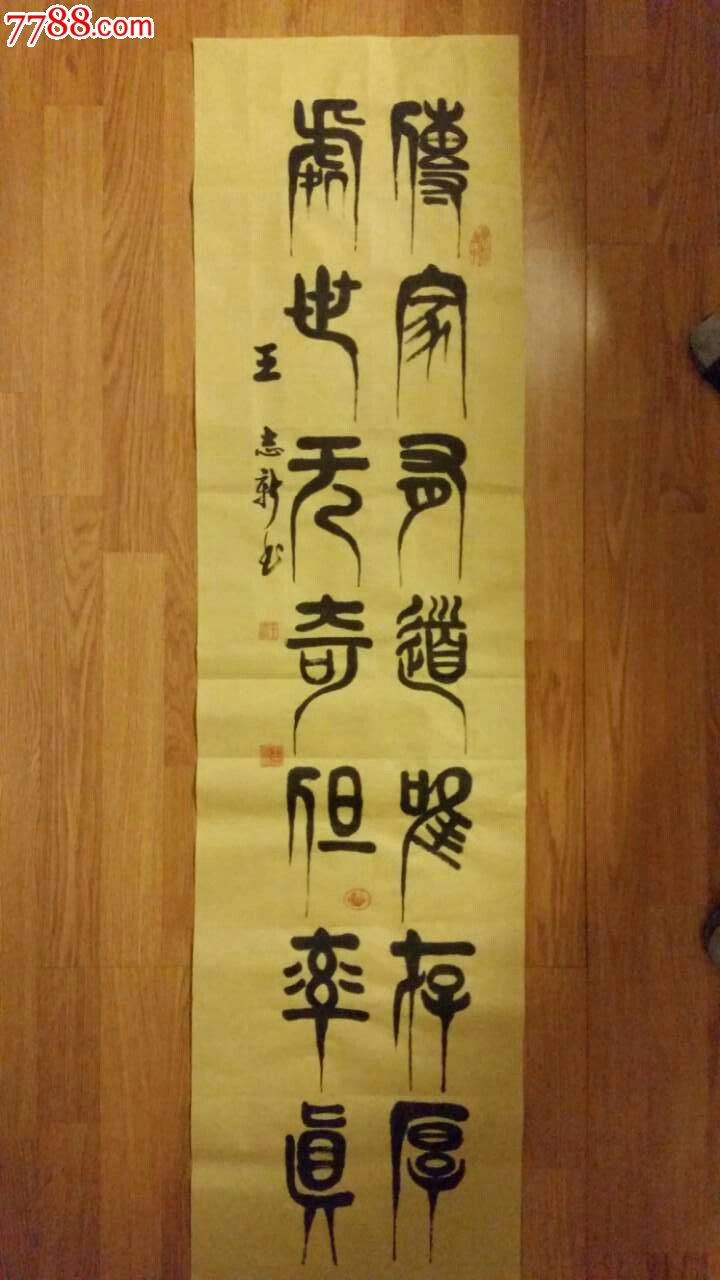 7788.com
傳家有道唯存厚
處世无奇但率真
王志新书